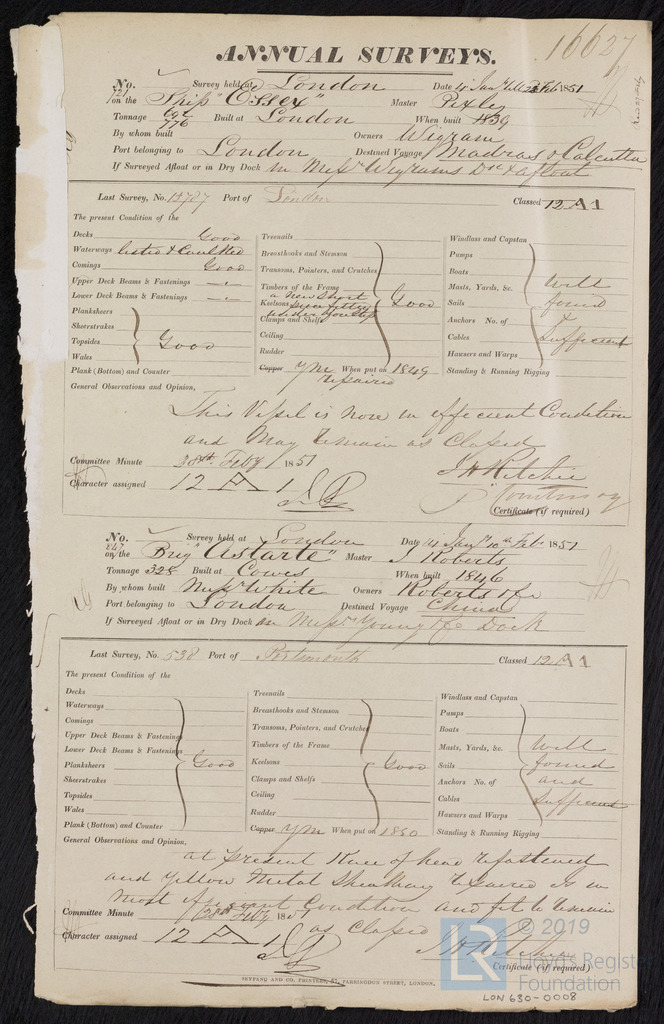 16627
ANNUAL SURVEYS.
No. Survey held at London Date 1851
721 on the Ship "Essex" Master Pixley
Tonnage 776 Built at London When built 1839
By whom built Owners Wigram
Port belonging to London Destined Voyage Madras & Calcutta
If Surveyed Afloat or in Dry Dock in Messrs Wigrams Dk & afloat
Last Survey, No. Port of London Classed 12 A1
The present Condition of the
Decks Good
Waterways Caulked
Comings Good
Upper Deck Beams & Fastenings
Lower Deck Beams & Fastenings
Planksheers
Sheerstrakes
Topsides Good
Wales
Plank (Bottom) and Counter
Treenails
Breasthooks and Stemson
Transoms, Pointers, and Crutches
Timbers of the Frame
Keelsons a New Short Good
Clamps and Shelfs
Ceiling
Rudder
Copper YM When put on 1849
repaired
Windlass and Capstan
Pumps
Boats
Masts, Yards, &c. Well
Sails found
Anchors No. of &
Cables Sufficient
Hawsers and Warps
Standing & Running Rigging
General Observations and Opinion,
This Vessel is now in efficient Condition
and May remain as Classed
Committee Minute 28th Feby 1851 J H Ritchie
Character assigned 12 A 1
Certificate (if required)
No. Survey held at London Date 1851
847 on the Brig "Astarte" Master J Roberts
Tonnage 328 Built at Cowes When built 1846
By whom built Messrs White Owners Roberts & Co
Port belonging to London Destined Voyage China
If Surveyed Afloat or in Dry Dock in Messrs Young & Co Dock
Last Survey, No. 538 Port of Portsmouth Classed 12 A1
The present Condition of the
Decks
Waterways
Comings
Upper Deck Beams & Fastenings
Lower Deck Beams & Fastenings
Planksheers Good
Sheerstrakes
Topsides
Wales
Plank (Bottom) and Counter
Treenails
Breasthooks and Stemson
Transoms, Pointers, and Crutches
Timbers of the Frame
Keelsons Good
Clamps and Shelfs
Ceiling
Rudder
Copper YM When put on 1850
Windlass and Capstan
Pumps
Boats
Masts, Yards, &c. Well
Sails found
Anchors No. of and
Cables Sufficient
Hawsers and Warps
Standing & Running Rigging
General Observations and Opinion,
at present Knee of head refastened
and Yellow Metal Sheathing repaired is in
Most efficient Condition and fit to remain
Committee Minute 28th Feby 1851 as Classed
Character assigned 12 A 1 J H Ritchie
Certificate (if required)
SKYFANG AND CO. PRINTERS, 57, FARRINGDON STREET, LONDON.
LR © 2019
Lloyd's Register
Foundation
LON 630-0008